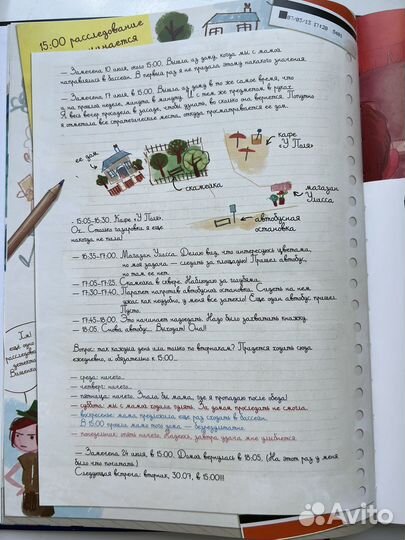 15:00 расследование
07/03/13 17h20
— Замечена 10 июля, около 15:00. Вышла из дому, когда мы с мамой
направлялись в бассейн. В первый раз я не придала этому никакого значения.
— Замечена 17 июля, в 15:00. Вышла из дому в то же самое время, что
и на прошлой неделе, минута в минуту. И с тем же предметом в руках.
Я весь вечер просидела в засаде, чтобы узнать, во сколько она вернется. Попутно
я отметила все стратегические места, откуда просматривается ее дом.
ее дом
скамейка
кафе
"У Поля"
магазин
Уласса
автобусная
остановка
- 15:05-15:30. Кафе "У Поля".
Ох... Столько газировки я еще
никогда не пила!
— 15:35-17:00. Магазин Уласса. Делаю вид, что интересуюсь цветами,
но моя задача — следить за площадью! Пришел автобус,
но там ее нет.
— 17:05-17:25. Скамейка в сквере. Наблюдаю за голубями.
— 17:30-17:40. Парапет напротив автобусной остановки. Сидеть на нем
ужас как неудобно, у меня все затекло! Еще один автобус пришел.
Пусто.
— 17:45-18:00. Это начинает надоедать. Надо было захватить книжку.
— 18:05. Снова автобус... Выходит! Она!!
Вопрос: так каждый день или только по вторникам? Придется ходить сюда
ежедневно, и обязательно к 15:00...
- среда: ничего...
- четверг: ничего...
- пятница: ничего. Знала бы мама, где я пропадаю после обеда!
- суббота: мы с мамой ходили гулять. За домом проследить не смогла.
- воскресенье: мама предложила еще раз сходить в бассейн.
В 15:00 прошли мимо того дома — безрезультатно.
- понедельник: опять ничего. Надеюсь, завтра удача мне улыбнется.
— Замечена 24 июля, в 15:00. Домой вернулась в 18:05. (На этот раз у меня
было что почитать.)
Следующая встреча: вторник, 30.07, в 15:00!!!
Avito